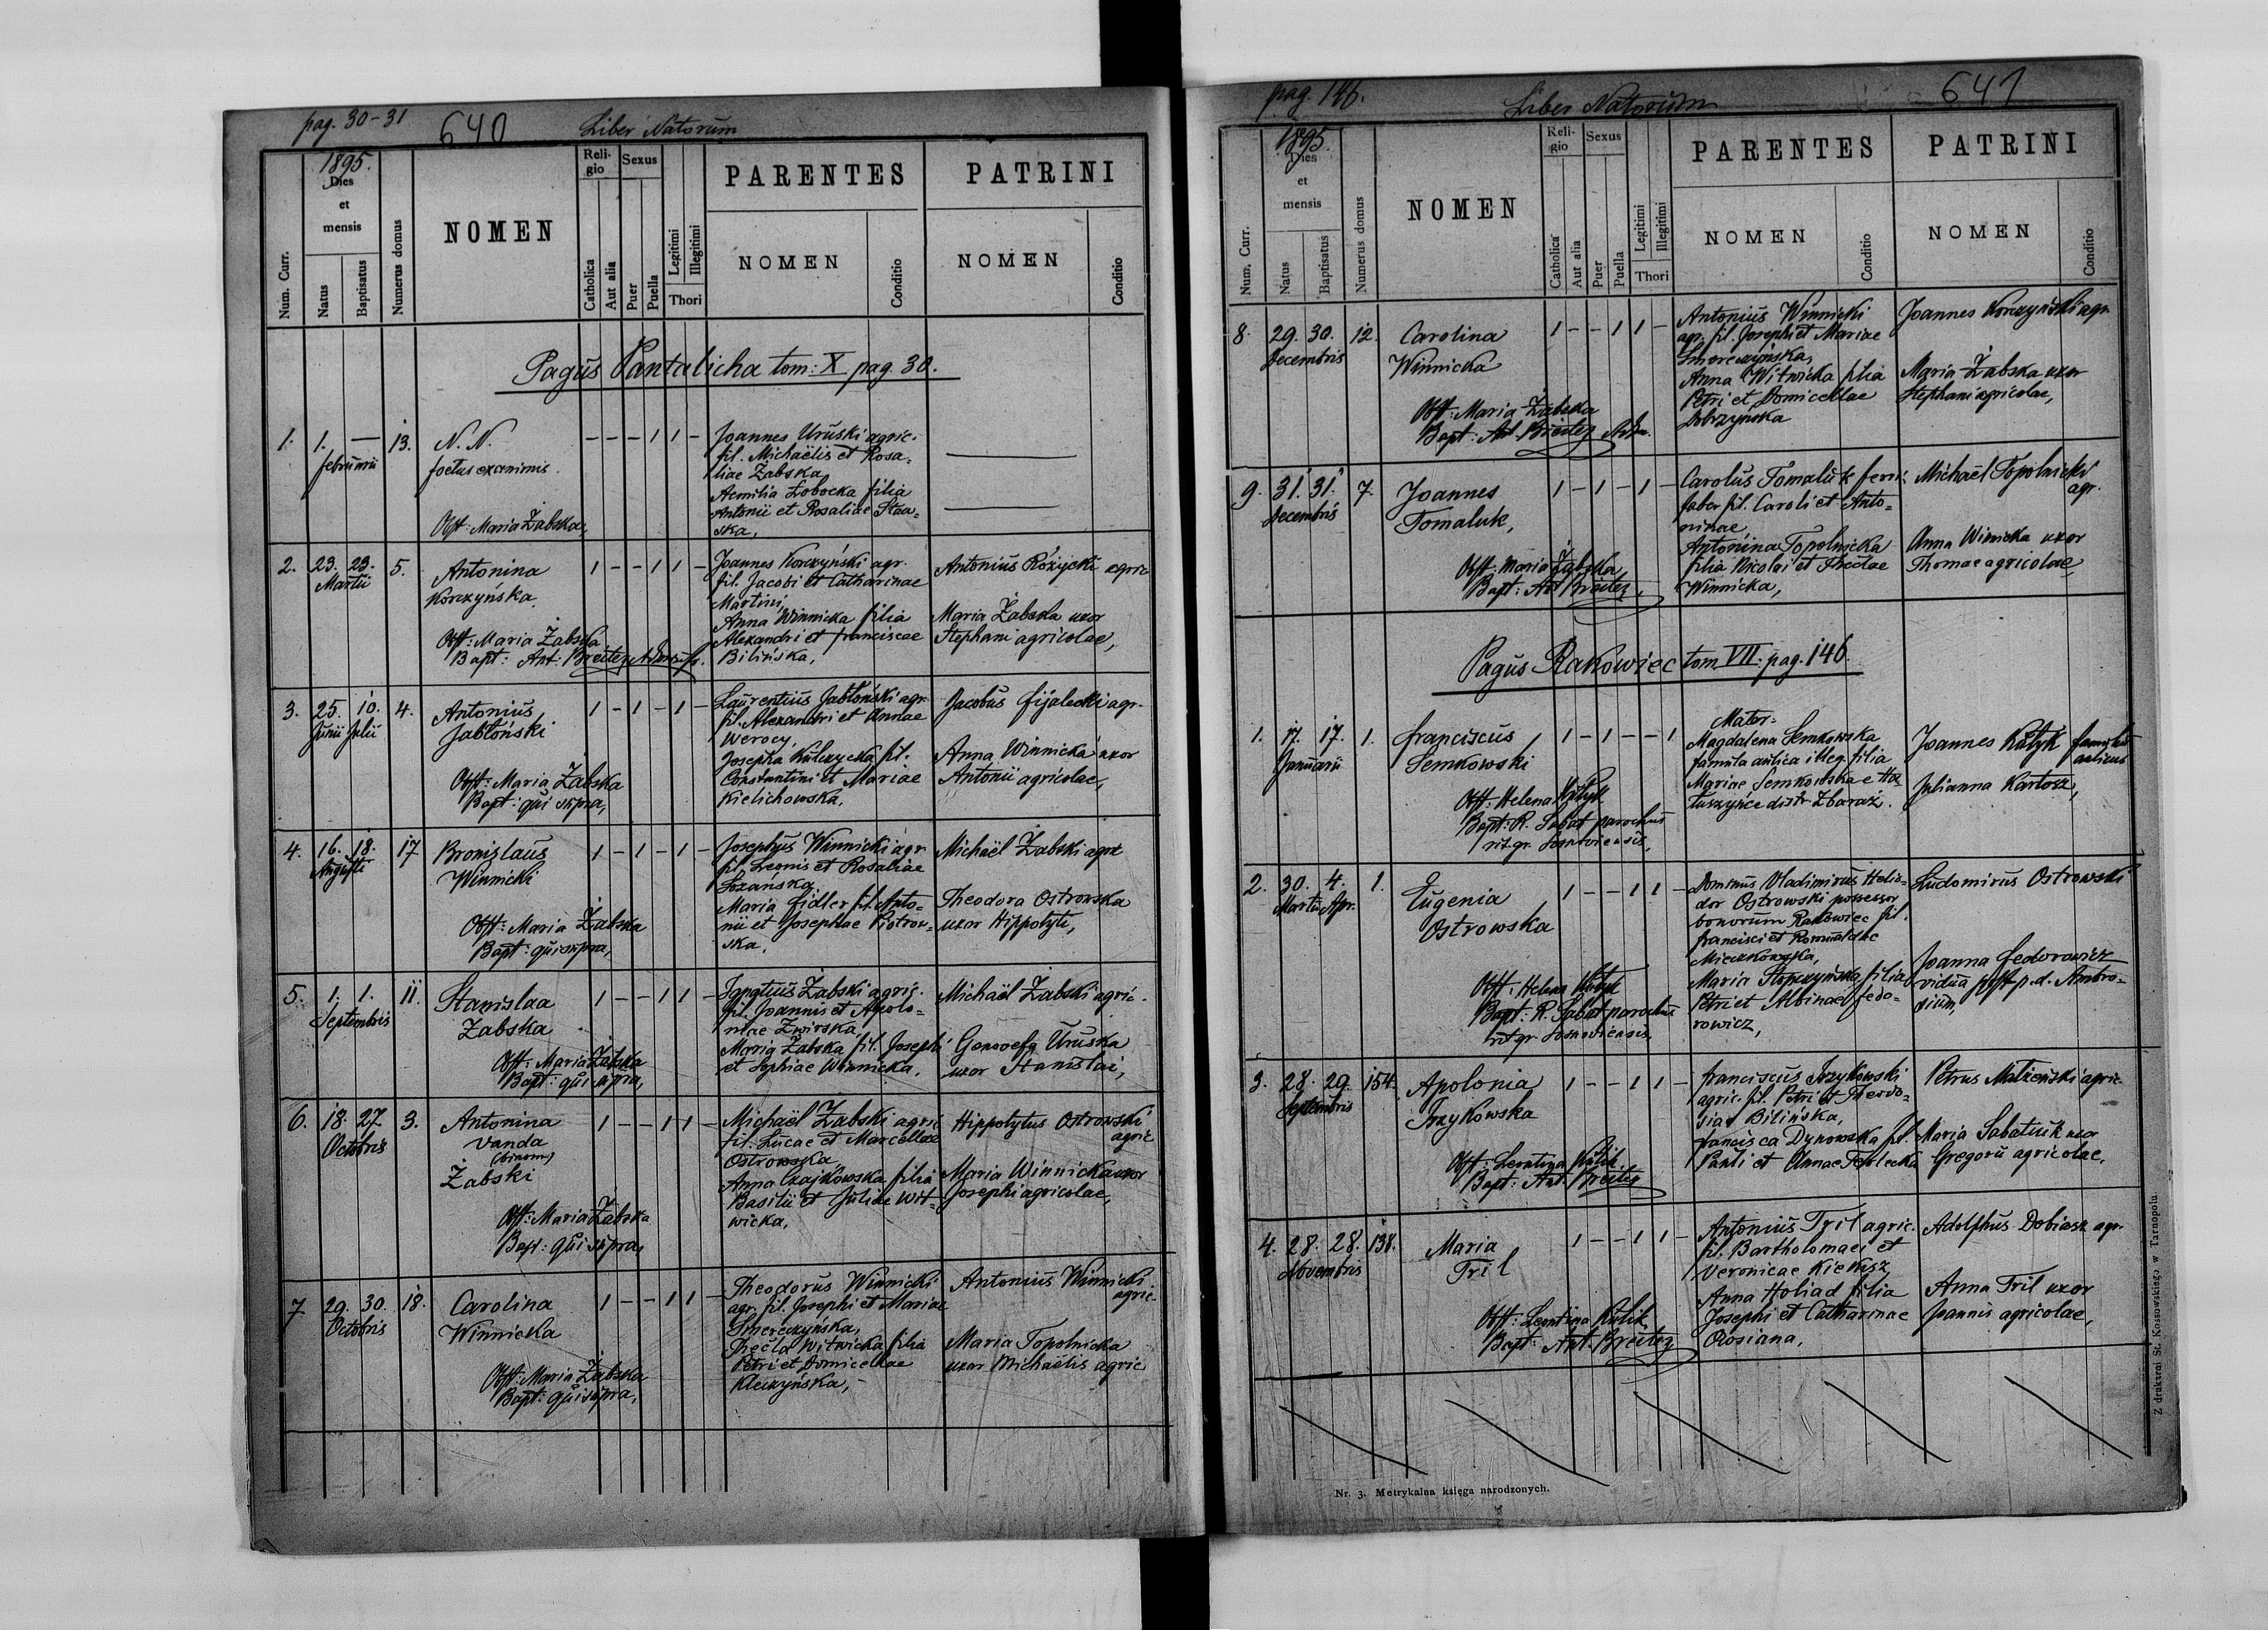 pag. 30-31
640
Liber Natorum
1895.
Dies
et
mensis
Num. Curr.
Natus
Baptisatus
Numerus domus
NOMEN
Reli-
gio
Catholica
Aut alia
Sexus
Puer
Puella
Legitimi
Illegitimi
Thori
PARENTES
NOMEN
Conditio
PATRINI
NOMEN
Conditio
Pagus Pantalicha tom: X pag. 30.
1. 1. — 13.
februarii
N. N.
foetus exanimis
Obst: Maria Żabska,
— — — 1 1 —
Joannes Uruski agric.
fil. Michaëlis et Rosa=
liae Żabska,
Aemilia Łobocka filia
Antonii et Rosaliae
ska,
2. 23. 23. 5.
Martii
Antonina
Korczyńska
Obst: Maria Żabska
Bapt: Ant: Breitez
1 — — 1 1 —
Joannes Korczyński agr.
fil. Jacobi et Catharinae
Martini,
Anna Winnicka filia
Alexandri et franciscae
Bilińska,
Antonius Różycki agric
Maria Żabska uxor
Stephani agricolae,
3. 25. 10. 4.
Junii Julii
Antonius
Jabłoński
Obst: Maria Żabska
Bapt: qui supra,
1 — 1 — 1 —
Laurentius Jabłoński agr.
fil. Alexandri et Annae
Werocy,
Josepha Kulczycka fil.
Constantini et Mariae
Kielichowska,
Jacobus fijalecki agr.
Anna Winnicka uxor
Antonii agricolae,
4. 16. 18. 17
Augusti
Bronislaus
Winnicki
Obst: Maria Żabska
Bapt: qui supra,
1 — 1 — 1 —
Josephus Winnicki agr.
fil. Leonis et Rosaliae
Łozańska
Maria fidler fil. Anto=
nii et Josephae Piotrow=
ska,
Michaël Żabski agric
Theodora Ostrowska
uxor Hippolyti,
5. 1. 1. 11.
Septembris
Stanislaa
Żabska
Obst: Maria Żabska
Bapt: qui supra,
1 — — 1 1 —
Ignatius Żabski agric.
fil. Joannis et Apolo=
niae Zwirska,
Maria Żabska fil. Josephi
et Sophiae Winnicka,
Michaël Żabski agric.
Genovefa Uruska
uxor Stanislai,
6. 18. 27 3.
Octobris
Antonina
Vanda
(binom)
Żabski
Obst: Maria Żabska
Bapt: qui supra,
1 — — 1 1 —
Michaël Żabski agric
fil. Lucae et Marcellae
Ostrowska
Anna Czajkowska filia
Basilii et Juliae Wit=
wicka,
Hippolytus Ostrowski
agric
Maria Winnicka uxor
Josephi agricolae,
7. 29. 30. 18.
Octobris
Carolina
Winnicka
Obst: Maria Żabska
Bapt: qui supra,
1 — — 1 1 —
Theodorus Winnicki
agr. fil. Josephi et Mariae
Smereczyńska,
Thecla Witwicka filia
Petri et Domicellae
Kleczyńska,
Antonius Winnicki
agric.
Maria Topolnicka
uxor Michaëlis agric
pag. 146.
Liber Natorum
641
1895.
Dies
et
mensis
Num. Curr.
Natus
Baptisatus
Numerus domus
NOMEN
Reli-
gio
Catholica
Aut alia
Sexus
Puer
Puella
Legitimi
Illegitimi
Thori
PARENTES
NOMEN
Conditio
PATRINI
NOMEN
Conditio
8. 29. 30. 12.
Decembris
Carolina
Winnicka
Obst: Maria Żabska
Bapt: Ant. Breitez Adm.
1 — — 1 1 —
Antonius Winnicki
agr. fil. Josephi et Mariae
Smereczyńska,
Anna Witwicka filia
Petri et Domicellae
Dobrzyńska
Joannes Korczyński agr.
Maria Żabska uxor
Stephani agricolae,
9. 31. 31. 7.
Decembris
Joannes
Tomaluk,
Obst: Maria Żabska,
Bapt: Ant Breitez,
1 — 1 — 1 —
Carolus Tomaluk ferri
faber fil. Caroli et Anto=
ninae,
Antonina Topolnicka
filia Nicolai et Theclae
Winnicka,
Michaël Topolnicki
agr.
Anna Winicka uxor
Thomae agricolae,
Pagus Rakowiec tom VII: pag. 146.
1. 17. 17. 1.
Januarii
franciscus
Semkowski
Obst: Helena Kutyk
Bapt: R. Sabat parochus
rit. gr. Sosnoviensis,
1 — 1 — — 1
Mater=
Magdalena Semkowska
famula aulica illeg. filia
Mariae Semkowska e
distr. Zbaraż.
Joannes Kutyk famulus
aulicus
Julianna Kartosz,
2. 30. 4. 1.
Martii Apr.
Eugenia
Ostrowska
Obst: Helena Kutyk
Bapt: R. Sabat parochus
rit. gr. Sosnoviensis,
1 — — 1 1 —
Dominus Vladimirus Helio=
dor Ostrowski possessor
bonorum Rakowiec fil.
francisci et Romualdae
Mieczkowska,
Maria filia
Petri et Albinae fedo=
rowicz,
Ludomirus Ostrowski
Joanna fedorowicz
vidua post p. d. Ambro=
sium,
3. 28. 29. 154.
Septembris
Apolonia
Irzykowska
Obst: Leontina Kulik
Bapt: Ant. Breitez
1 — — 1 1 —
franciscus Irzykowski
agric. fil. Petri et Theodo=
siae Bilińska,
francisca Dynowska fil.
Pauli et Annae Teolecka
Petrus Malzeński agric.
Maria Sabatiuk uxor
Gregorii agricolae,
4. 28. 28. 138.
Novembris
Maria
Tril
Obst: Leontina Kulik
Bapt: Ant. Breitez
1 — — 1 1 —
Antonius Tril agric.
fil. Bartholomaei et
Veronicae Kiekisz
Anna Holiad filia
Josephi et Catharinae
Rosiana,
Adolphus Dobiasz agr.
Anna Tril uxor
Joannis agricolae,
Nr. 3. Metrykalna księga narodzonych.
Z drukarni St. Kossowskiego w Tarnopolu.